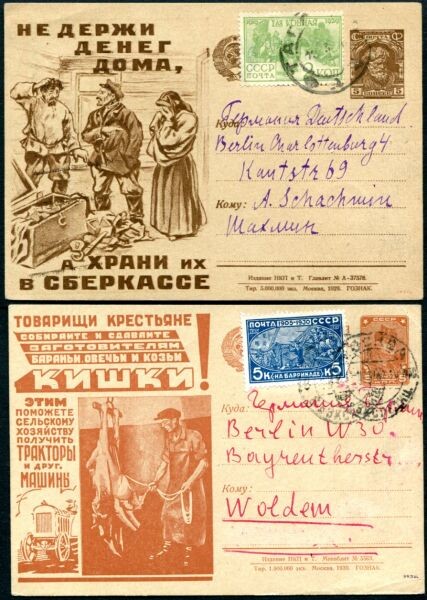 НЕ ДЕРЖИ
ДЕНЕГ
ДОМА,
А ХРАНИ ИХ
В СБЕРКАССЕ
1-АЯ КОННАЯ
СССР
ПОЧТА
5 КОПЕЕК 5
Куда:
Германия Deutschland
Berlin Charlottenburg 4
Kantstr 69
Кому:
A. Schachmin
Шахмин
Издание НКПТ и Т. Главлит № А-37578.
Тир. 5.000.000 экз. Москва, 1929. ГОЗНАК.
ТОВАРИЩИ КРЕСТЬЯНЕ
СОБИРАЙТЕ И СДАВАЙТЕ
ЗАГОТОВИТЕЛЯМ
БАРАНЬИ, ОВЕЧЬИ И КОЗЬИ
КИШКИ!
ЭТИМ
ПОМОЖЕТЕ
СЕЛЬСКОМУ
ХОЗЯЙСТВУ
ПОЛУЧИТЬ
ТРАКТОРЫ
И ДРУГ.
МАШИНЫ
ПОЧТА 1905-1930 СССР
5К (НА БАРРИКАДЕ) К5
СССР
Куда:
Германия
Berlin W30
Кому:
Woldem
Издание НКПТ и Т.
Тир. 1.000.000 экз. Москва, 1930. ГОЗНАК.